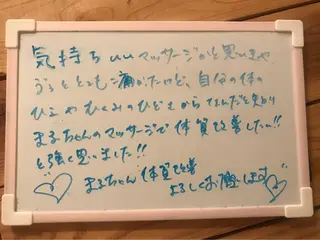 気持ちいいマッサージかと思いきや
とても痛かったけど、自分の体の
ひえやむくみのひどさからなんだと知り
まるちゃんのマッサージで体質改善したい!!
と強く思いました!!
まるちゃん 体質改善
よろしくお願いします